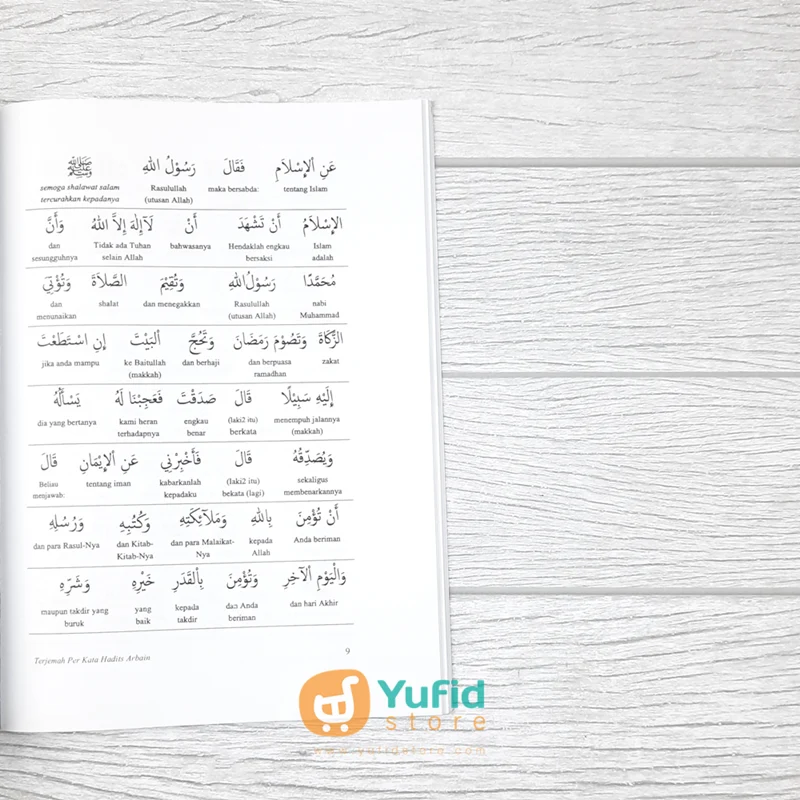 عَنِ ٱلإِسْلاَمِ فَقَالَ رَسُوْلُ اللهِ ﷺ
tentang Islam maka bersabda: Rasulullah semoga shalawat salam
(utusan Allah) tercurahkan kepadanya
الإِسْلاَمُ أَنْ تَشْهَدَ أَنْ لَآإِلٰهَ إِلاَّ اللهُ وَأَنَّ
Islam Hendaklah engkau bahwasanya Tidak ada Tuhan dan
adalah bersaksi selain Allah sesungguhnya
مُحَمَّدًا رَسُوْلُ اللهِ وَتُقِيْمَ الصَّلاَةَ وَتُؤْتِيَ
nabi Rasulullah dan menegakkan shalat dan
Muhammad (utusan Allah) menunaikan
الزَّكَاةَ وَتَصُوْمَ رَمَضَانَ وَتَحُجَّ ٱلبَيْتَ إِنِ اسْتَطَعْتَ
zakat dan berpuasa dan berhaji ke Baitullah jika anda mampu
ramadhan (makkah)
إِلَيْهِ سَبِيْلًا قَالَ صَدَقْتَ فَعَجِبْنَا لَهُ يَسْأَلُهُ
menempuh jalannya (laki2 itu) engkau kami heran dia yang bertanya
(makkah) berkata benar terhadapnya
وَيُصَدِّقُهُ قَالَ فَأَخْبِرْنِي عَنِ ٱلإِيْمَانِ قَالَ
sekaligus (laki2 itu) kabarkanlah tentang iman Beliau
membenarkannya bekata (lagi) kepadaku menjawab:
أَنْ تُؤْمِنَ بِاللهِ وَمَلآئِكَتِهِ وَكُتُبِهِ وَرُسُلِهِ
Anda beriman kepada dan para Malaikat- dan Kitab- dan para Rasul-Nya
Allah Nya Kitab-Nya
وَالْيَوْمِ ٱلآخِرِ وَتُؤْمِنَ بِٱلقَدَرِ خَيْرِهِ وَشَرِّهِ
dan hari Akhir dan Anda kepada yang maupun takdir yang
beriman takdir baik buruk
Terjemah Per Kata Hadits Arbain 9
Yufid
store
www.yufidstore.com